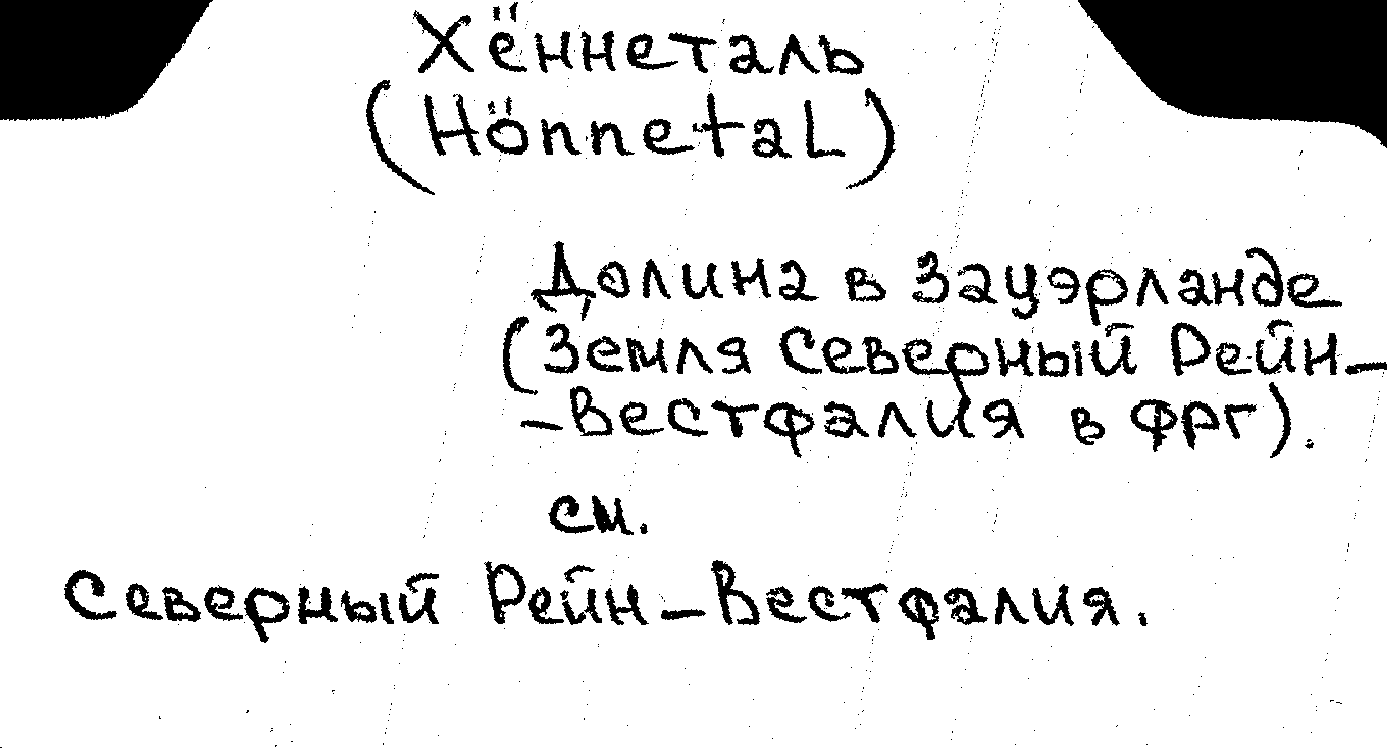 Хённеталь
(Hönnetal)
Долина в Зауэрланде
(Земля Северный Рейн-
-Вестфалия в ФРГ).
см.
Северный Рейн-Вестфалия.